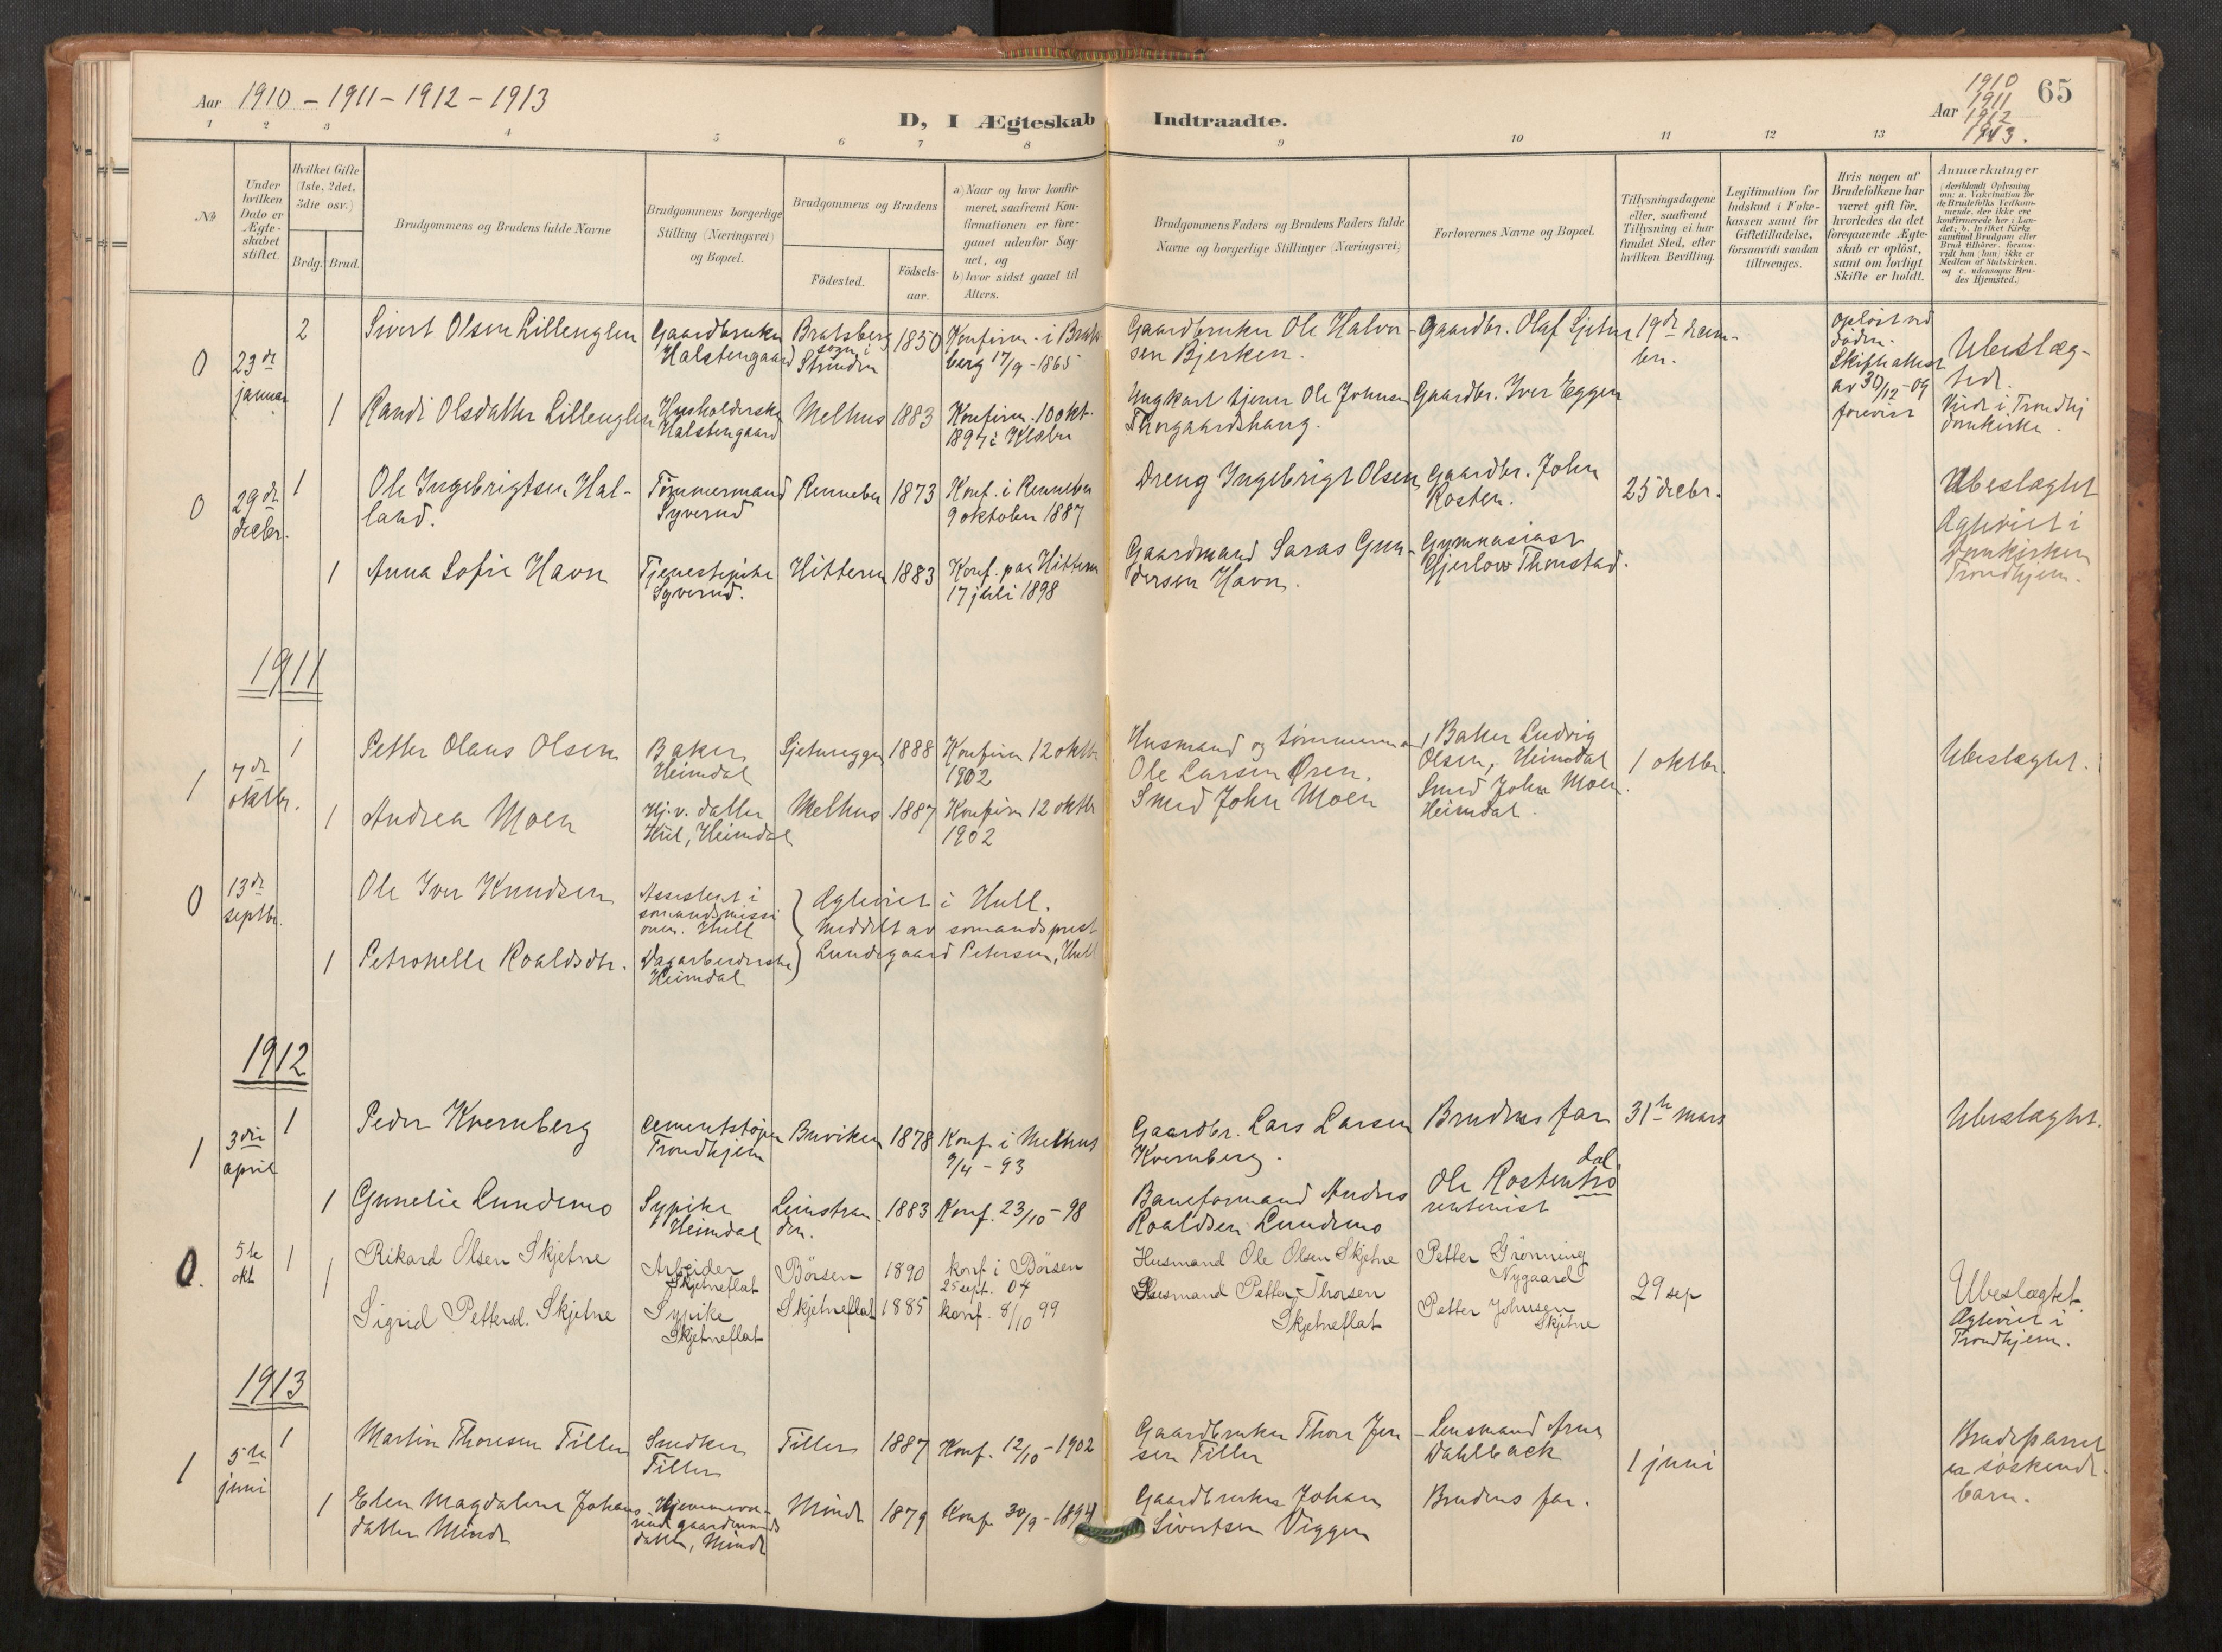 Aar 1910 - 1911 - 1912 - 1913
D, I Ægteskab Indtraadte.
Aar 1910
1911
1912
1913.
65
1 2 3 4 5 6 7 8 9 10 11 12 13
No
Under
hvilken
Dato er
Ægte-
skabet
stiftet.
Hvilket Gifte
(1ste, 2det,
3die osv.)
Brdg. Brud.
Brudgommens og Brudens fulde Navne
Brudgommens borgerlige
Stilling (Næringsvei)
og Bopæl.
Brudgommens og Brudens
Födested.
Födsels-
aar.
a) Naar og hvor konfir-
meret, saafremt Kon-
firmationen er fore-
gaaet udenfor Sog-
net, og
b) hvor sidst gaaet til
Alters.
Brudgommens Faders og Brudens Faders fulde
Navne og borgerlige Stillinger (Næringsvei)
Forlovernes Navne og Bopæl.
Tillysningsdagene
eller, saafremt
Tillysning ei har
fundet Sted, efter
hvilken Bevilling.
Legitimation for
Indskud i Enke-
kassen samt for
Giftetilladelse,
forsaavidt saadan
tiltrænges.
Hvis nogen af
Brudefolkene har
været gift för,
hvorledes da det
foregaaende Ægte-
skab er oplöst,
samt om lovligt
Skifte er holdt.
Anmærkninger
(deriblandt Oplysning
om: a. Vakcination for
de Brudefolks Vedkom-
mende, der ikke ere
konfirmerede her i Lan-
det; b. hvilket Kirke-
samfund Brudgom eller
Brud tilhører, forsaa-
vidt han (hun) ikke er
Medlem af Statskirken,
og c. udensogns Bru-
des Hjemsted.)
0 23de januar
2 Sivert Olsen Lillenglen
Gaardbruker
Halstengaard
Bratsberg
sogn i
Strinden
1850
Konfirm. i Brats
berg 17/9 - 1865
Gaardbruker Ole Halvor-
sen Bjerken.
Gaardbr. Olaf Sjetne
19de decem-
ber.
Opløst ved
døden.
Skifteattest
av 30/12 - 09
forevist
Ubeslæg-
tede.
Viede i Trondhj
domkirke.
1 Randi Olsdatter Lillenglen
Husholderske
Halstengaard
Melhus
1883
Konfirm. 10 okt.
1897 i Klæbu
Ungkarl tjener Ole Johnsen
Thorgaardshaug.
Gaardbr. Iver Eggen
0 29de decbr.
1 Ole Ingebrigtsen Hal-
land.
Tømmermand
Syverud
Rennebu
1873
Konf. i Rennebu
9 oktober 1887
Dreng Ingebrigt Olsen
Gaardbr. John
Rosten.
25 decbr.
Ubeslægtet
Agteviet i
Domkirken
Trondhjem.
1 Anna Sofie Havn
Tjenestepike
Syverud.
Hitteren
1883
Konf. paa Hitteren
17 juli 1898
Gaardmand Saras Gun-
dersen Havn.
Gymnasiast
Gjerlow Thonstad.
1911
1 7de oktbr.
1 Petter Olaus Olsen
Baker
Heimdal
Sjetnreggen
1888
Konfirm 12 oktbr
1902
Husmand og tømmerman
Ole Larsen Øren.
Baker Ludvig
Olsen, Heimdal
1 oktbr.
Ubeslægtet.
1 Andrea Moen
Hj. v. datter
Hiil, Heimdal
Melhus
1887
Konfirm 12 oktbr
1902
Smed John Moen
Smed John Moen.
Heimdal.
0 13de septbr.
Ole Iver Knudsen
Assistent i
sømandsmissi
onen. Hull
Agteviet i Hull.
Meddelt av sømandsprest
Lundsgaard Petersen, Hull
1 Petronelle Roaldsdtr.
Dagarbeiderske
Heimdal
1912
1 3die april
1 Peder Kvernberg
Cementstøper
Trondhjem
Buviken
1878
Konf. i Melhus
9/4 - 93
Gaardbr. Lars Larsen
Kvernberg.
Brudens far
31te mars
Ubeslægtet.
1 Gunelie Lundemo
Sypike
Heimdal
Leinstran
den.
1883
Konf. 23/10 - 98
Baneformand Anders
Roaldsen Lundemo
Ole Rostentrø
dal
rentenist
0. 5te okt
1 Rikard Olsen Skjetne
Arbeider
Skjetneflat
Börsen
1890
konf i Börsen
25 sept. 04
Husmand Ole Olsen Skjetne
Petter Grönning
Nygaard
29 sep
Ubeslægtet.
Agteviet i
Trondhjem.
1 Sigrid Pettersd. Skjetne
Sypike
Skjetneflat
Skjetneflat
1885
konf. 8/10 99
Husmand Petter Thorsen
Skjetneflat
Petter Johnsen
Skjetne
1913
1 5te juni
1 Martin Thoresen Tiller
Snedker
Tiller
Tiller
1887
Konf. 12/10 - 1902
Gaardbruker Thore Jen-
sen Tiller
Lensmand Arne
Dahlback
1 juni
Brudeparret
er søskende-
barn.
1 Elen Magdalene Johans
datter Minde
Hjemmevæ-
rende gaardmands
datter, Minde
Minde
1879
Konf 30/9 - 1894
Gaardbruker Johan
Sivertsen Viggen
Brudens far.